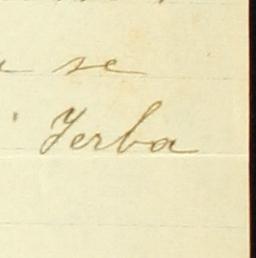 se
Yerba